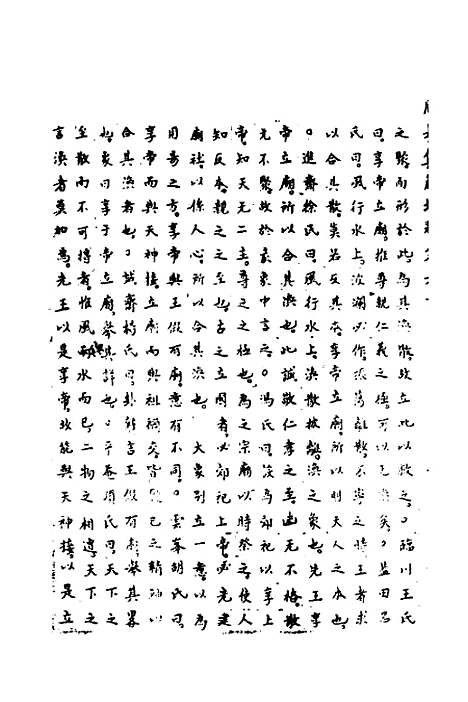 之聚而形於此為其渙散故立此以收之臨川王氏
曰享帝立廟推尊親仁義之德可以已渙矣藍田呂
氏曰風行水上波瀾必作振蕩離散不寧之時王者求
以合其散莫若反其本享帝立廟所以明天人之本也
進齋徐氏曰風行水上渙散披離渙之象也先王享
帝立廟所以合其渙也此誠敬仁孝之至幽无不格散
无不聚故於彖象中言之馮氏曰冬為郊祀以享上
帝知天无二主尊之之極也為之宗廟以時祭之使人
知反本親之之至也古之立國者必郊祀上帝必先建
廟祧以係人心所以合其渙也大象別立一意以為
用易之方享帝與王假有廟意有不同雲峯胡氏曰
享帝而與天神接立廟而與祖禰交皆聚己之精神以
合其渙者也誠齋楊氏曰卦辭言王假有廟舉其略
也象曰享于帝立廟舉其詳也平菴項氏曰天下之
至散而不可摶者惟風與水而已二物之相遭天下之
言渙者莫加焉先王以是享帝故能與天神接以是立